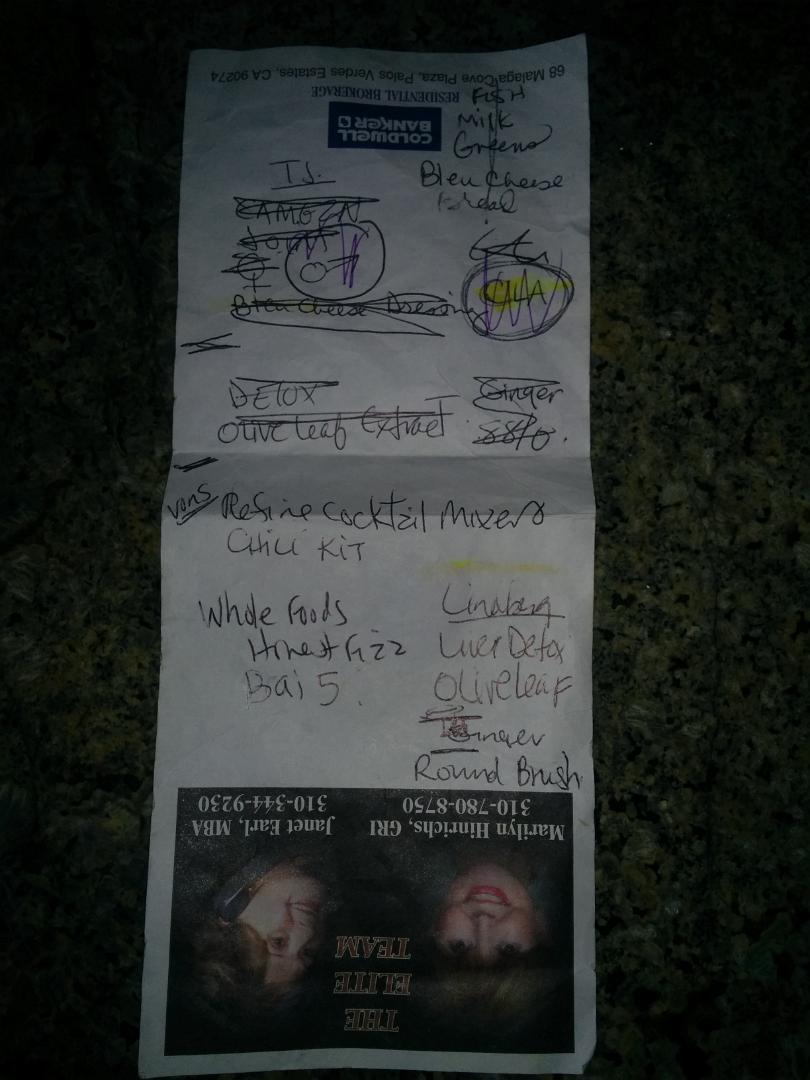 68 Malaga Cove Plaza, Palos Verdes Estates, CA 90274
RESIDENTIAL BROKERAGE
COLDWELL
BANKER
FISH
Milk
Greens
Bleu Cheese
Bread
T.J.
Bleu Cheese Dressing
CLA
DETOX
Olive leaf Extract
Ginger
Vons
Cocktail Mixers
CHILI KIT
Whole Foods
Honest Fizz
Bai 5
Lindberg
Liver Detox
Olive leaf
Ginger
Round Brush
Marilyn Hinrichs, GRI
310-780-8750
Janet Earl, MBA
310-344-9230
THE
ELITE
TEAM